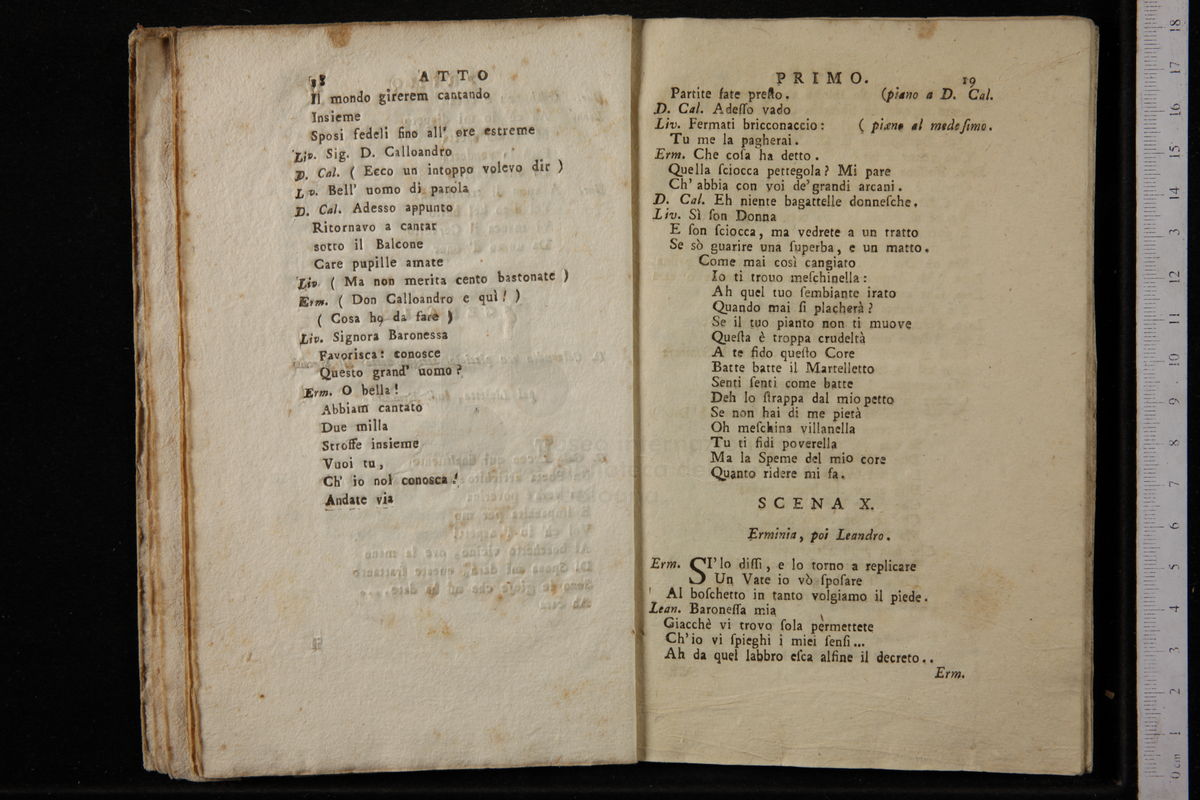 18 ATTO
Il mondo girerem cantando
Insieme
Sposi fedeli fino all' ore estreme
Liv. Sig. D. Calloandro
D. Cal. ( Ecco un intoppo volevo dir )
L v. Bell' uomo di parola
D. Cal. Adesso appunto
Ritornavo a cantar
sotto il Balcone
Care pupille amate
Liv. ( Ma non merita cento bastonate )
Erm. ( Don Calloandro e quì! )
( Cosa ho da fare )
Liv. Signora Baronessa
Favorisca: conosce
Questo grand' uomo?
Erm. O bella!
Abbiam cantato
Due milla
Stroffe insieme
Vuoi tu,
Ch' io nol conosca!
Andate via
PRIMO. 19
Partite fate preſto. (piano a D. Cal.
D. Cal. Adeſſo vado
Liv. Fermati bricconaccio: ( piano al medeſimo.
Tu me la pagherai.
Erm. Che coſa ha detto.
Quella ſciocca pettegola? Mi pare
Ch' abbia con voi de' grandi arcani.
D. Cal. Eh niente bagattelle donneſche.
Liv. Sì ſon Donna
E ſon ſciocca, ma vedrete a un tratto
Se sò guarire una ſuperba, e un matto.
Come mai così cangiato
Io ti trovo meſchinella:
Ah quel tuo ſembiante irato
Quando mai ſi placherà?
Se il tuo pianto non ti muove
Queſta è troppa crudeltà
A te fido queſto Core
Batte batte il Martelletto
Senti ſenti come batte
Deh lo ſtrappa dal mio petto
Se non hai di me pietà
Oh meſchina villanella
Tu ti fidi poverella
Ma la Speme del mio core
Quanto ridere mi fa.
SCENA X.
Erminia, poi Leandro.
Erm. SI' lo diſſi, e lo torno a replicare
Un Vate io vò ſpoſare
Al boſchetto in tanto volgiamo il piede.
Lean. Baroneſſa mia
Giacchè vi trovo ſola permettete
Ch' io vi ſpieghi i miei ſenſi...
Ah da quel labbro eſca alfine il decreto..
Erm.